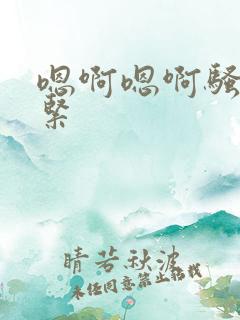 嗯啊嗯啊骚
紧
晴若秋波
未经同意禁止转载